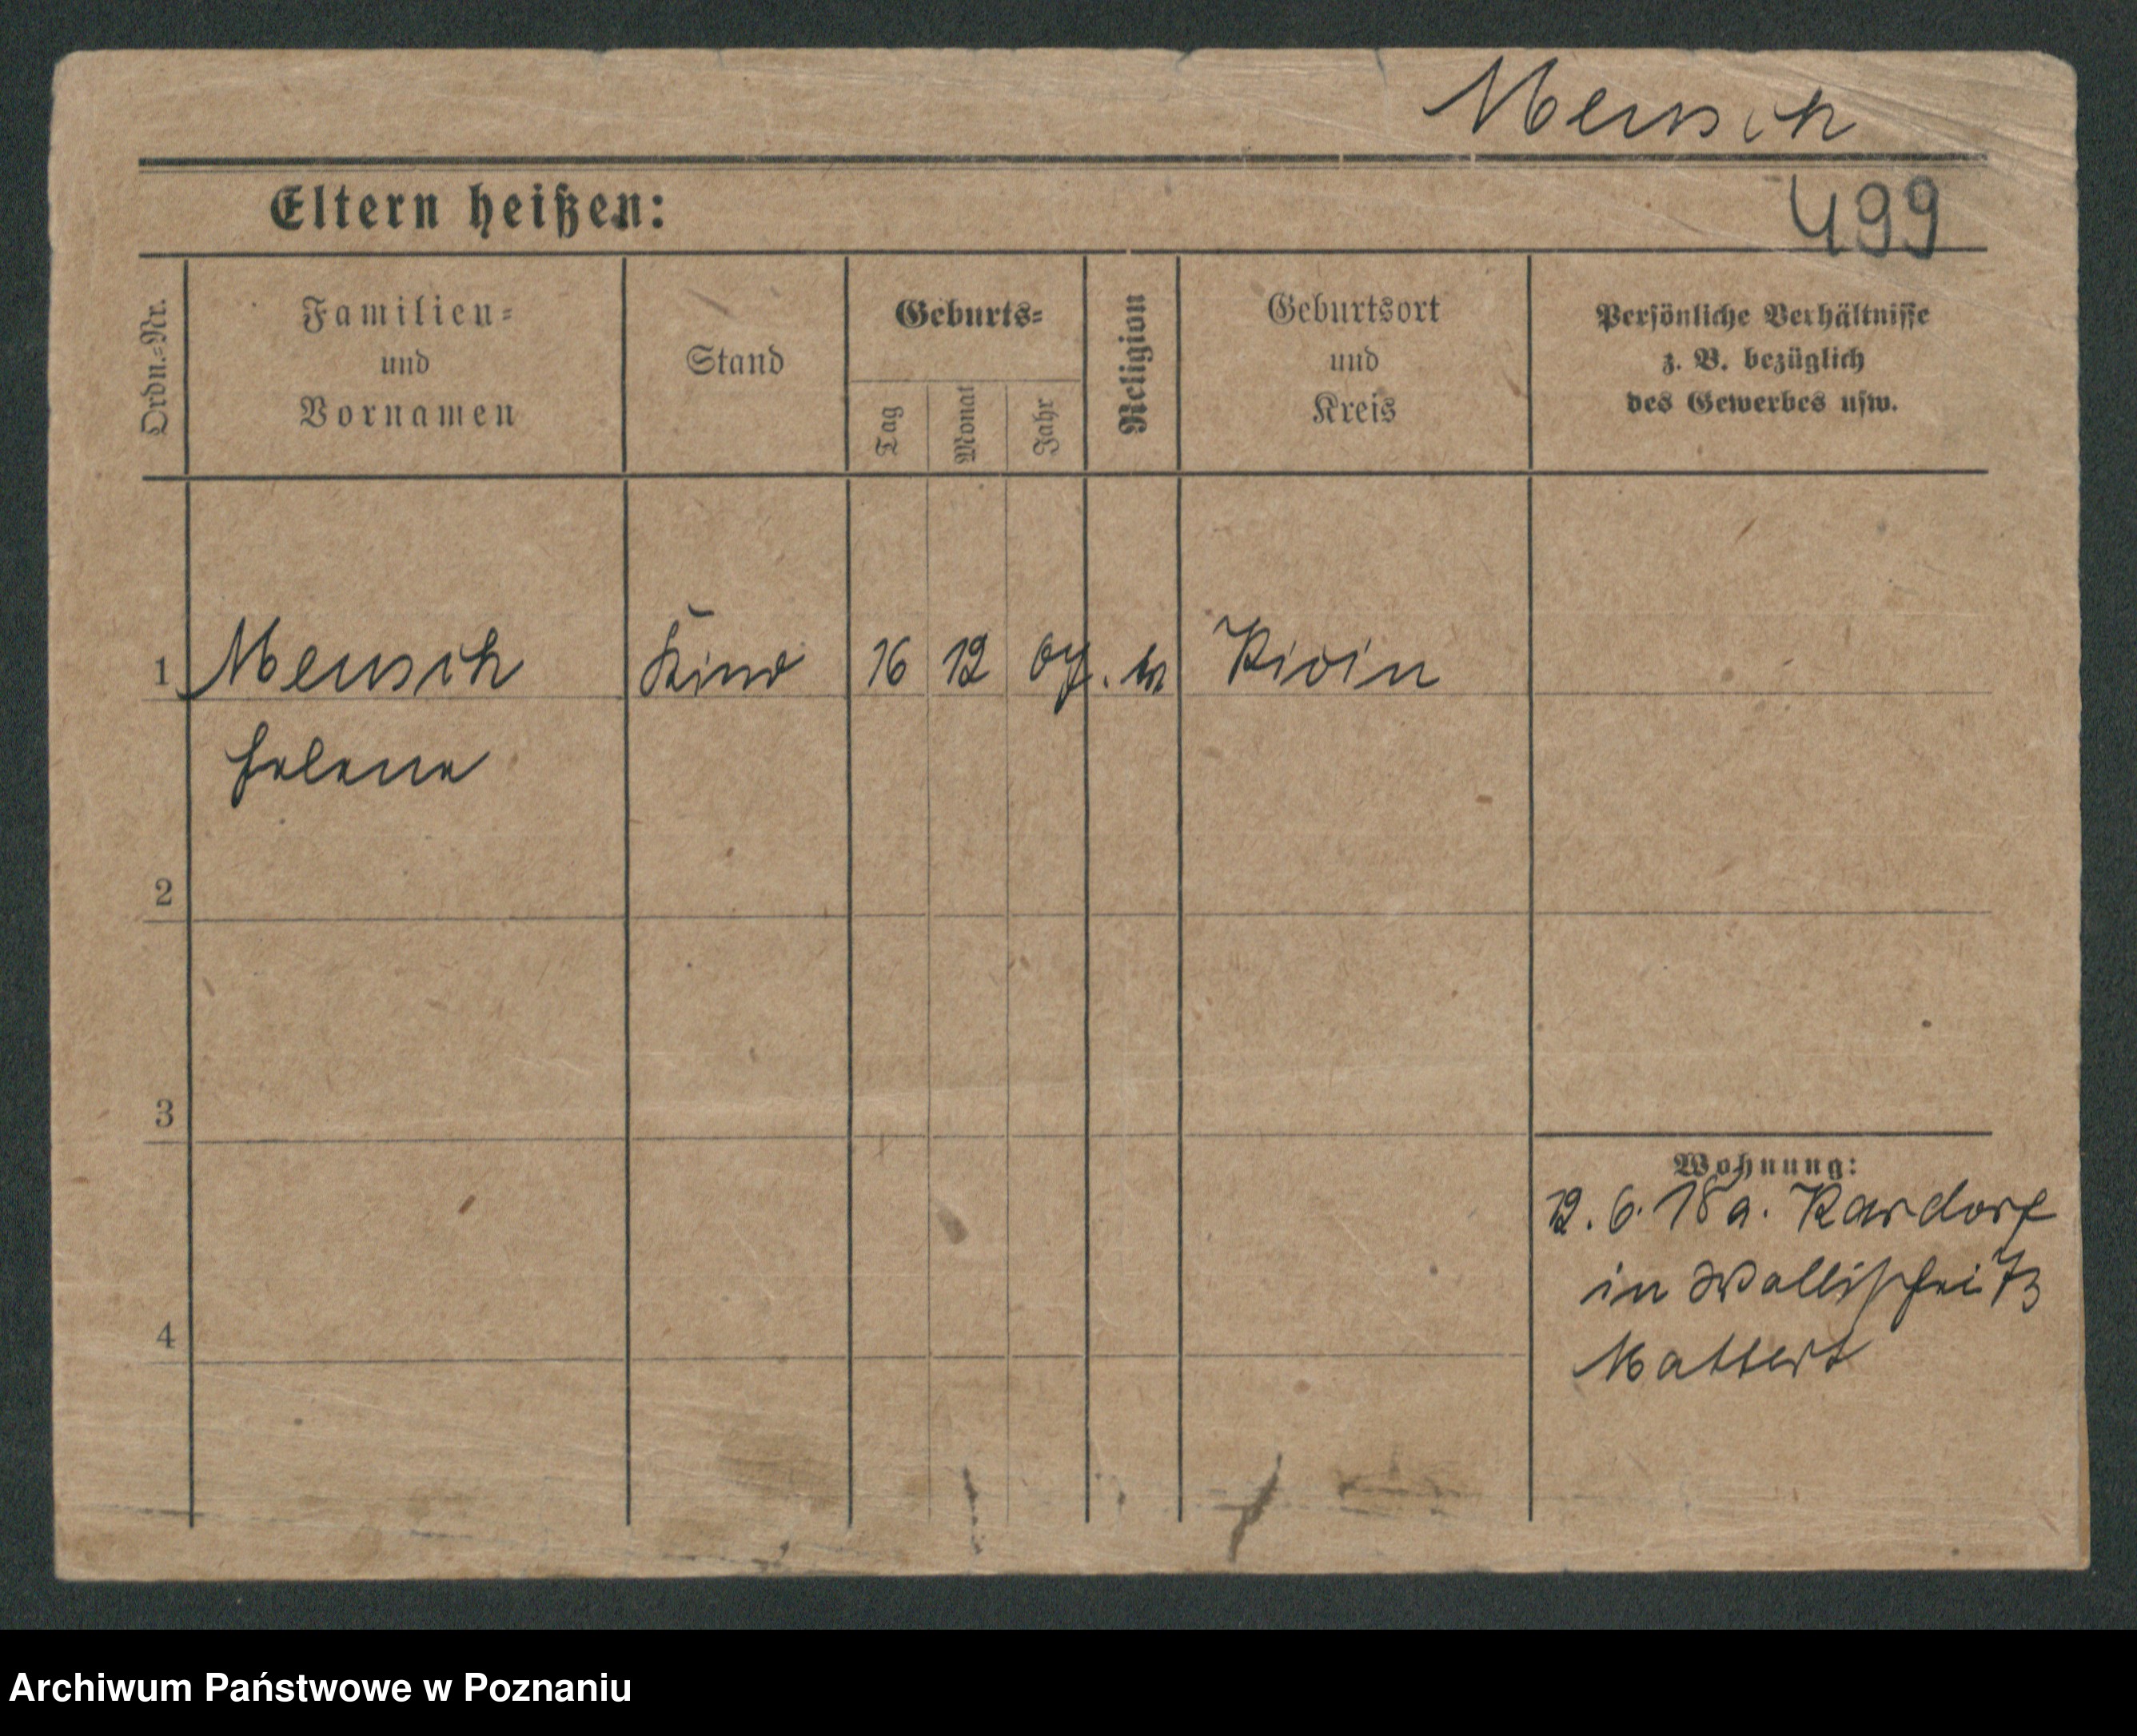 Mensch
Eltern heißen:
499
Ordn.-Nr.
Familien-
und
Vornamen
Stand
Geburts-
Tag
Monat
Jahr
Religion
Geburtsort
und
Kreis
Persönliche Verhältnisse
z. B. bezüglich
des Gewerbes usw.
1 Mensch Kind 16 12 07.
Helene
2
3
4
Wohnung:
12. 6. 18 a. Kardorf
in
Archiwum Państwowe w Poznaniu